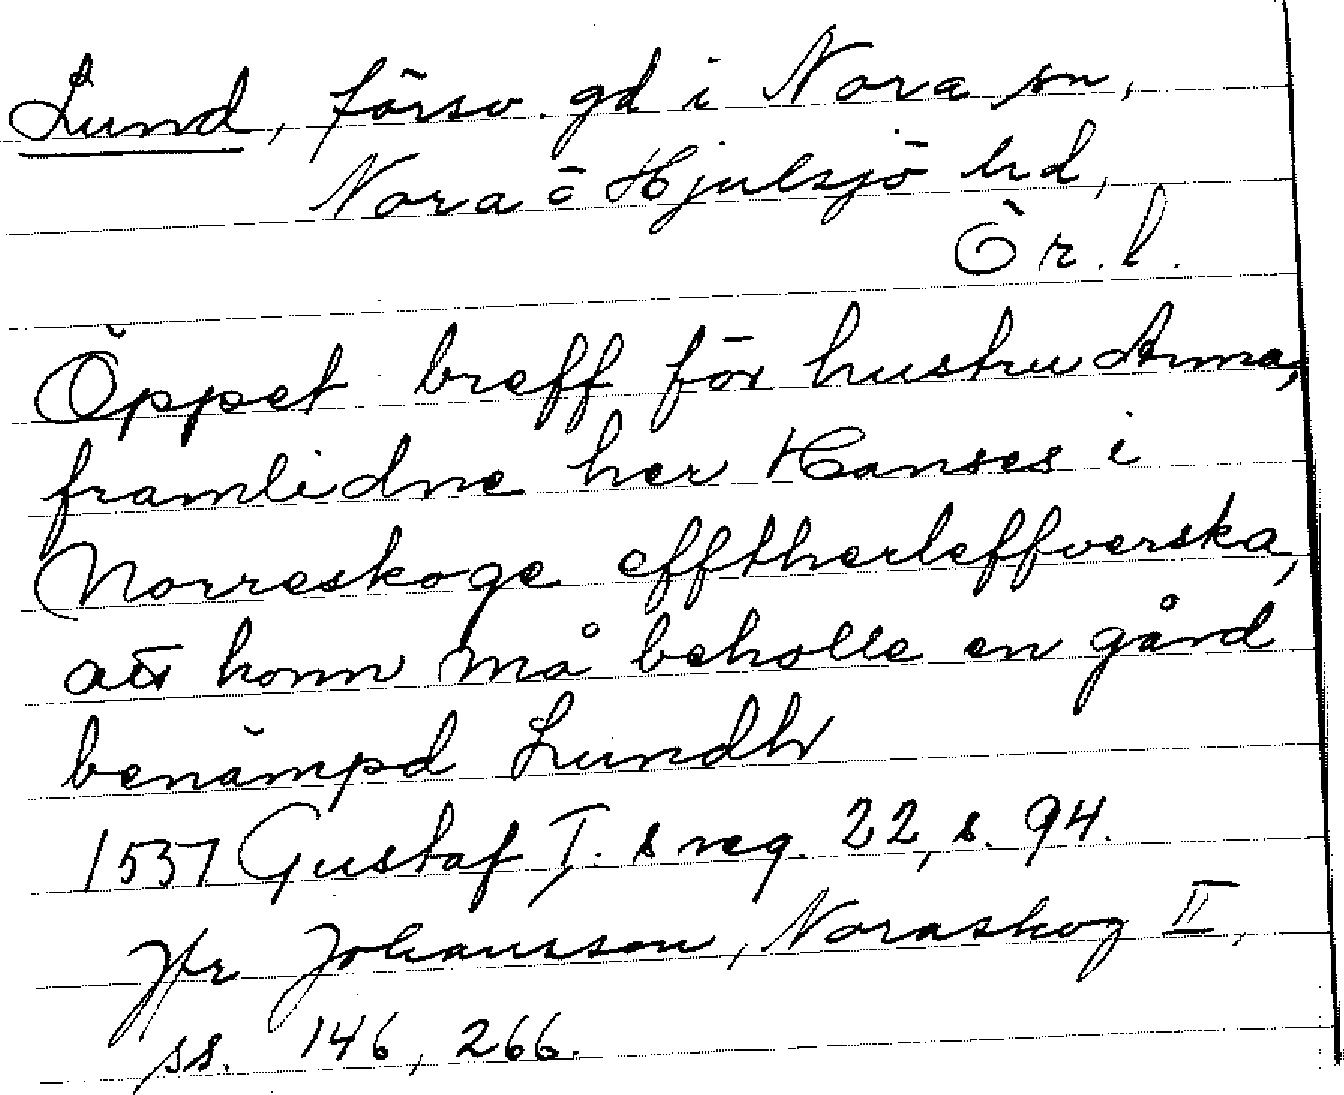 Lund, försv. gd i Nora sn,
Nora o Hjulsjö hd,
Ör. l.
Öppet breff för hustru Anna,
framlidne her Hanses i
Norreskoge efftherleffverska,
att honn må beholle en gård
benämpd Lundh
1537 Gustaf I. s reg. 22, s. 94.
Jfr Johansson, Noraskog II,
ss. 146, 266.